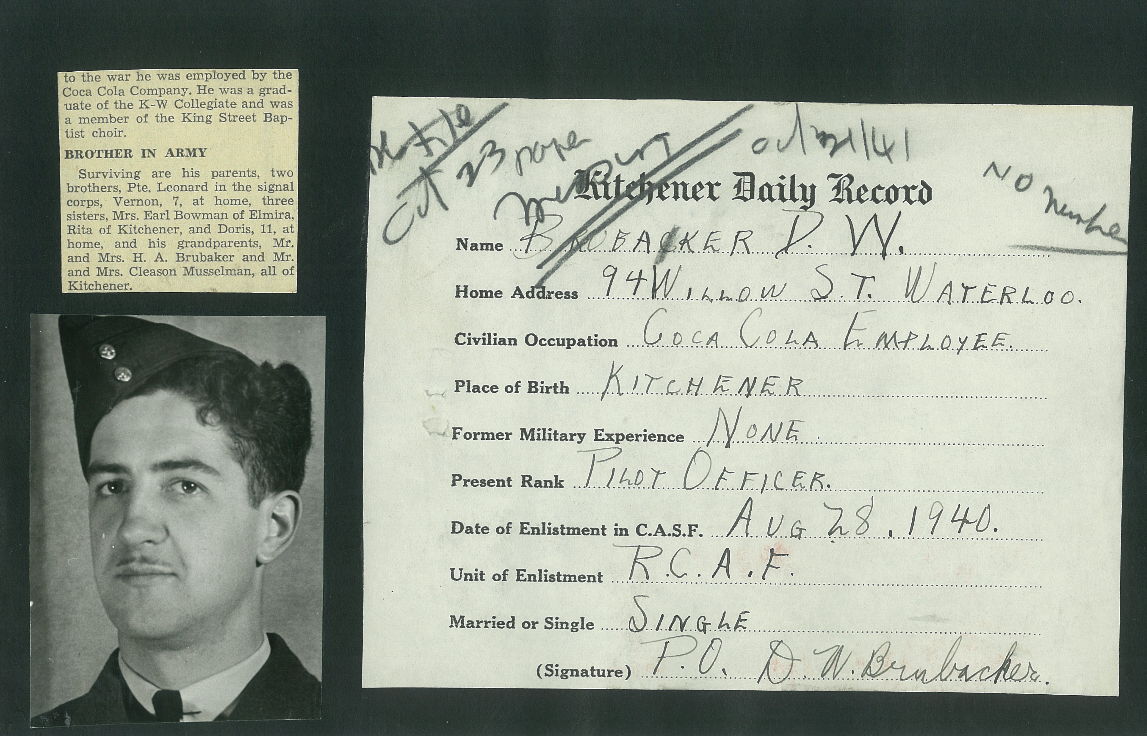 to the war he was employed by the
Coca Cola Company. He was a grad-
uate of the K-W Collegiate and was
a member of the King Street Bap-
tist choir.
BROTHER IN ARMY
Surviving are his parents, two
brothers, Pte. Leonard in the signal
corps, Vernon, 7, at home, three
sisters, Mrs. Earl Bowman of Elmira,
Rita of Kitchener, and Doris, 11, at
home, and his grandparents, Mr.
and Mrs. H. A. Brubaker and Mr.
and Mrs. Cleason Musselman, all of
Kitchener.
file
Oct 23 paper
Oct 21/41
No
Kitchener Daily Record
Name BRUBACKER D. W.
Home Address 94 WILLOW ST. WATERLOO.
Civilian Occupation COCA COLA EMPLOYEE.
Place of Birth KITCHENER
Former Military Experience NONE
Present Rank PILOT OFFICER.
Date of Enlistment in C.A.S.F. AUG 28, 1940.
Unit of Enlistment R.C.A.F.
Married or Single SINGLE
(Signature) P.O. D. W. Brubacher.